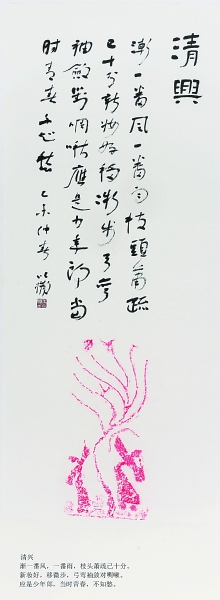 清興
漸一番风一番雨枝頭蕭疏
已十分新妝好移微步弓弯
袖斂對啁啾應是少年郎當
时青春不知愁 乙未仲春
清兴
渐一番风，一番雨，枝头萧疏已十分。
新妆好，移微步，弓弯袖敛对啁啾。
应是少年郎，当时青春，不知愁。